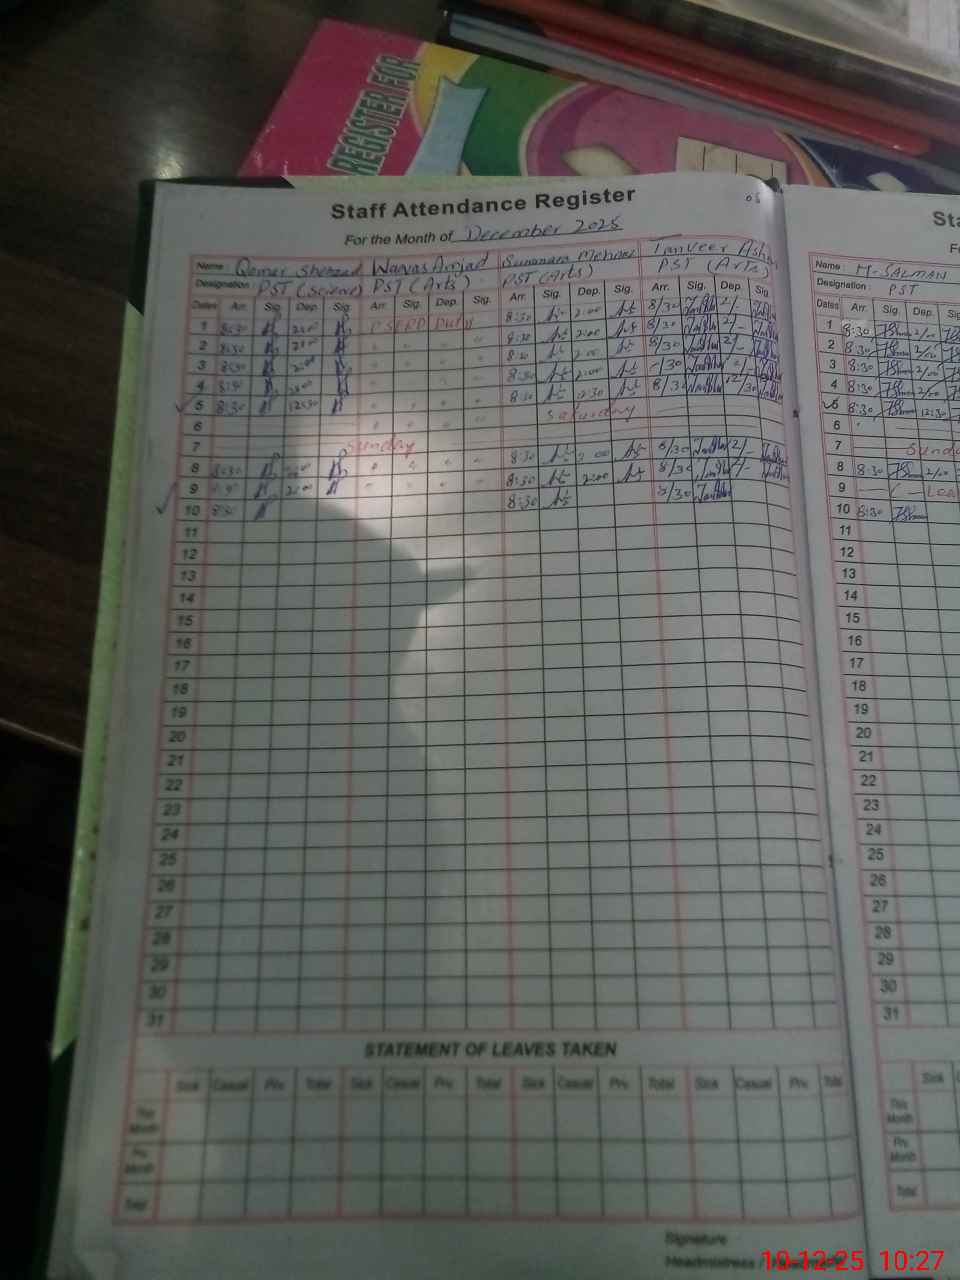 REGISTER FOR
Staff Attendance Register
05
For the Month of December 2025
Name: Qamar Shehzad Waqas Amjad Summara Mehnaz Tanveer
Designation: PST (Science) PST (Arts) PST (Arts) PST (Arts)
Dates Arr. Sig. Dep. Sig. Arr. Sig. Dep. Sig. Arr. Sig. Dep. Sig. Arr. Sig. Dep. Sig.
1 8:30 2:00 PSERP Duty 8:30 2:00 8/30 2/-
2 8:30 2:00 " " " " 8:30 2:00 8/30 2/-
3 8:30 2:00 " " " " 8:30 2:00 8/30 2/-
4 8:30 2:00 " " " " 8:30 2:00 /30 2/-
5 8:30 12:30 " " " " 8:30 12:30 8/30 12/30
6 " " " " Saturday
7 Sunday
8 8:30 2:00 " " " " 8:30 2:00 8/30 2/-
9 8:30 2:00 " " " " 8:30 2:00 8/30 2/-
10 8:30 8:30 8/30
11
12
13
14
15
16
17
18
19
20
21
22
23
24
25
26
27
28
29
30
31
STATEMENT OF LEAVES TAKEN
Sick Casual Prv. Total Sick Casual Prv. Total Sick Casual Prv. Total Sick Casual Prv. Total
This Month
Prv. Month
Total
Signature
Headmistress /
Sta
F
Name: M-SALMAN
Designation: PST
Dates Arr. Sig. Dep. Sig.
1 8:30 2/00
2 8:30 2/00
3 8:30 2/00
4 8:30 2/00
5 8:30 12:30
6
7 Sund
8 8:30 2/00
9 C - Lea
10 8:30
11
12
13
14
15
16
17
18
19
20
21
22
23
24
25
26
27
28
29
30
31
Sick
This Month
Prv. Month
Total
10-12-25 10:27